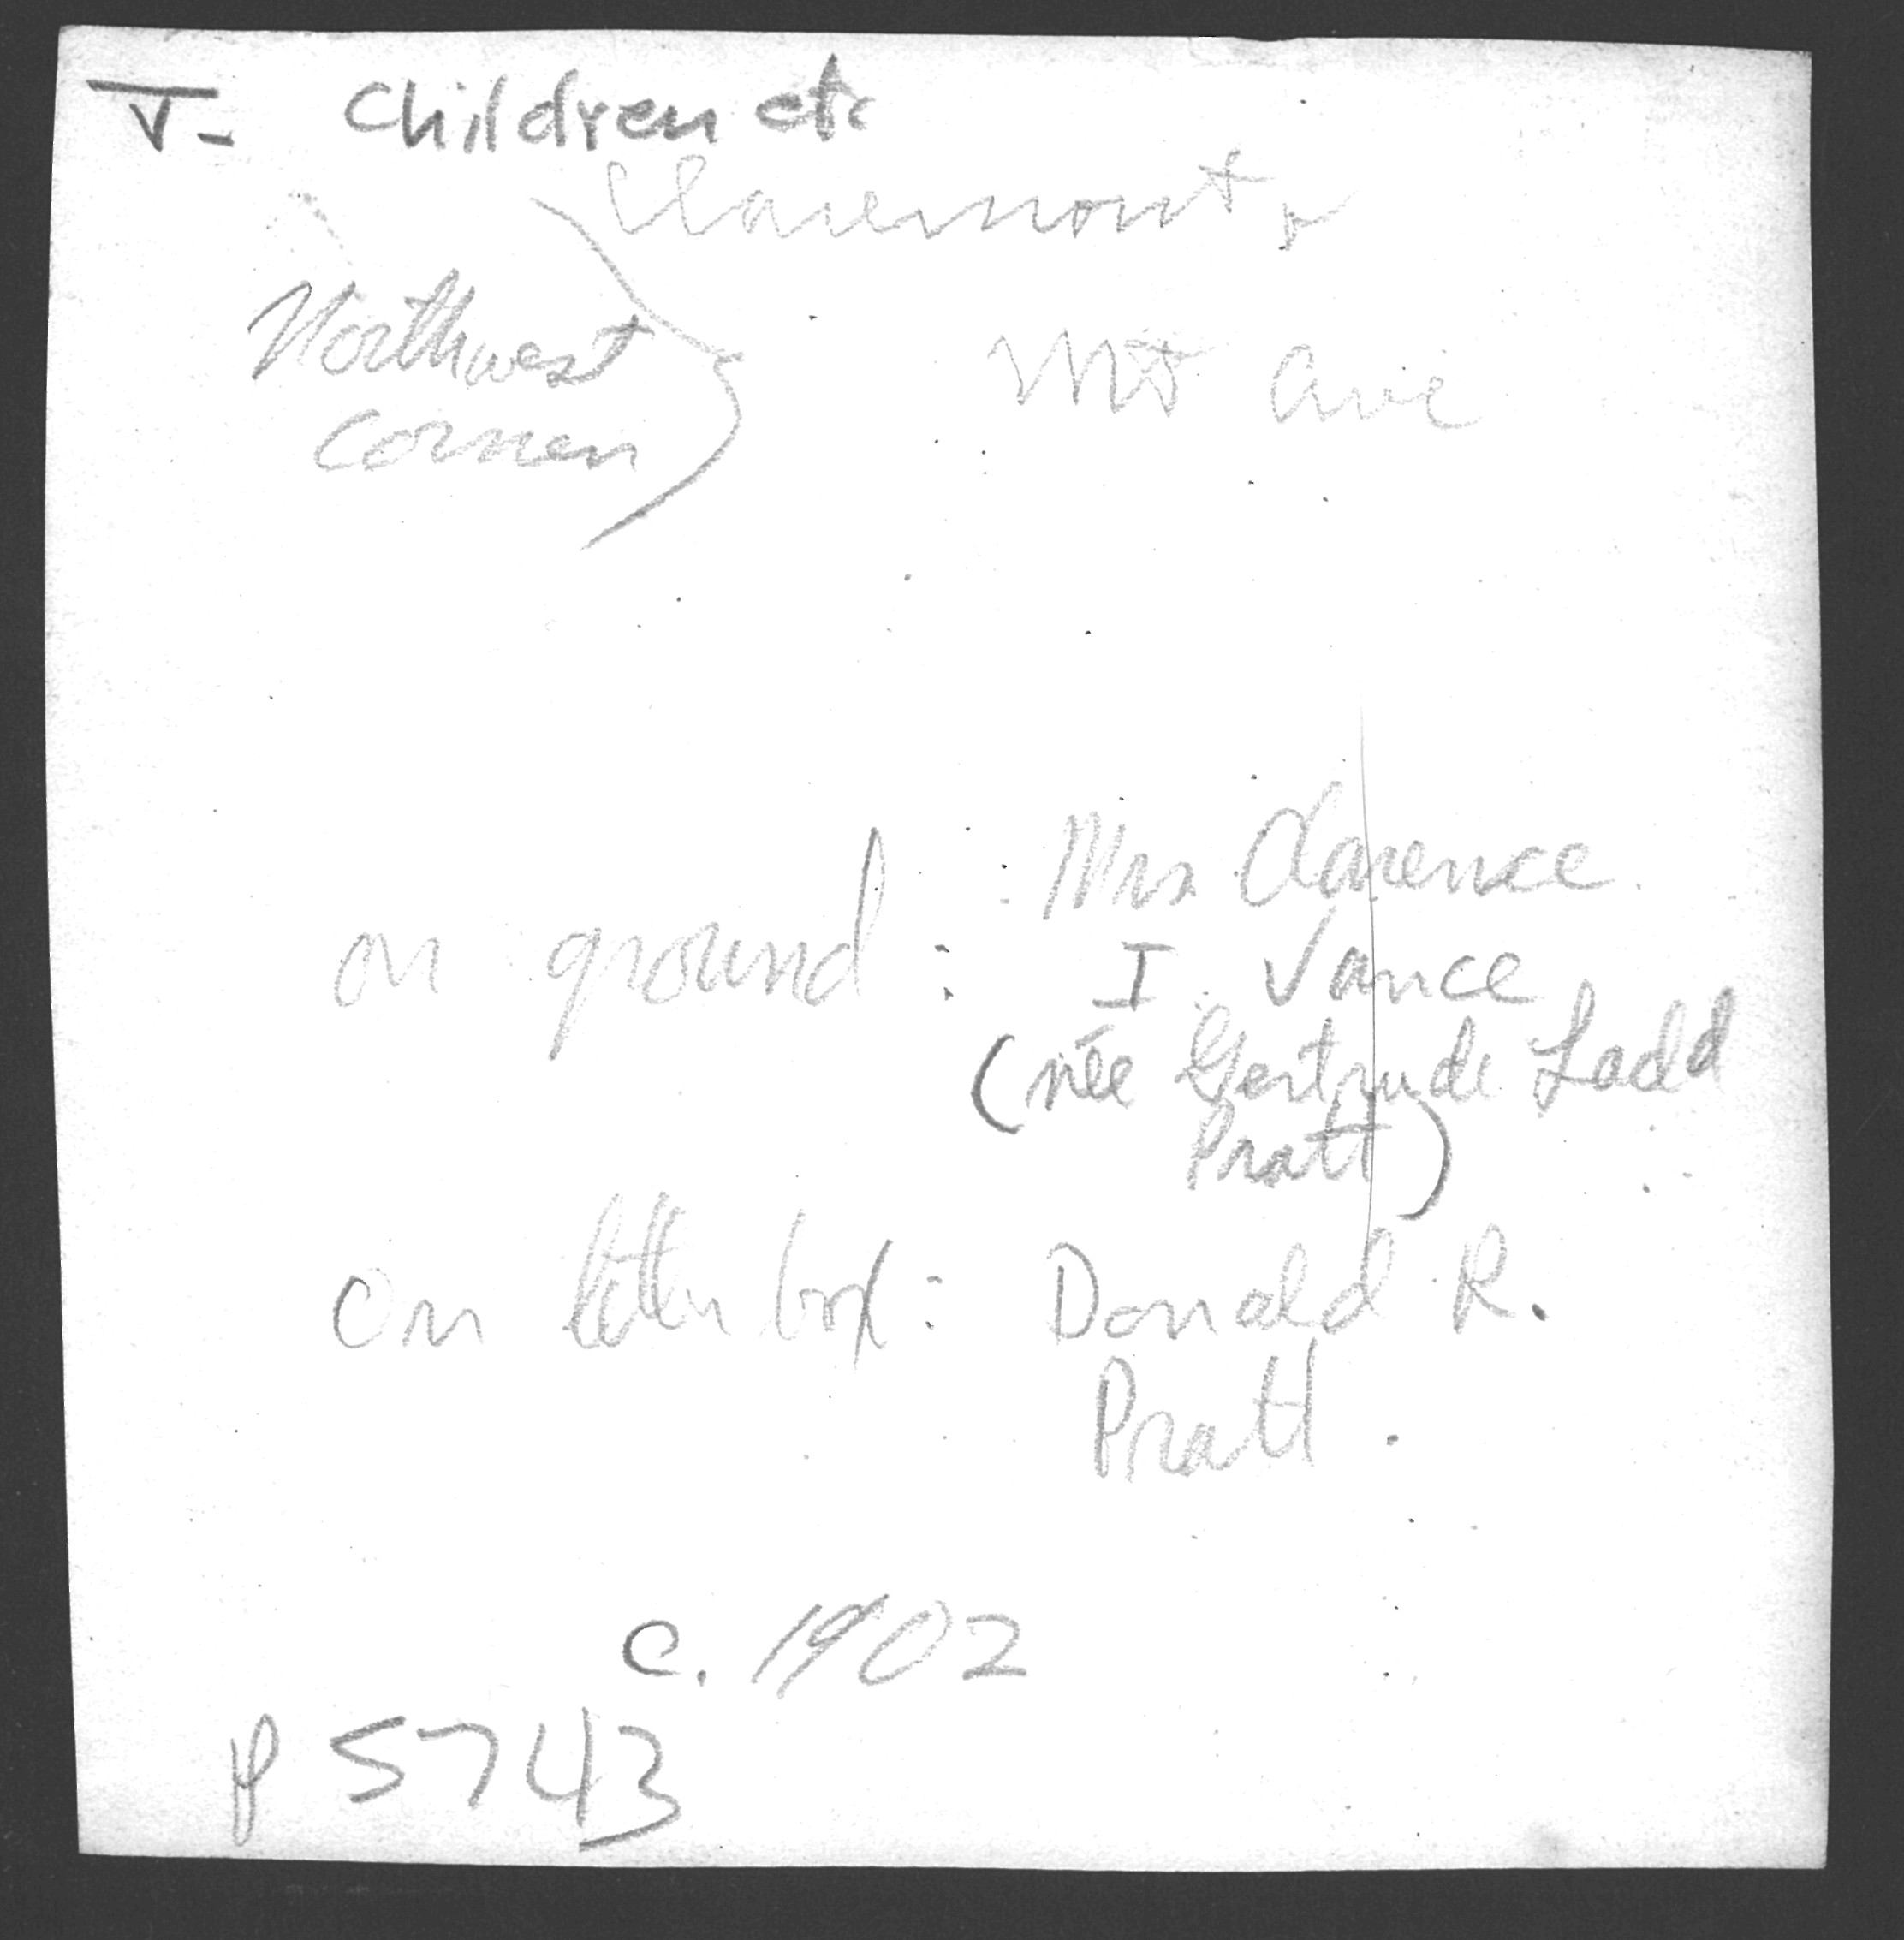 V - Children etc
Claremont &
Northwest
Corner
Mt Ave
on ground : Mrs Clarence
I. Vance
(née Gertrude Ladd
Pratt)
on letter box : Donald R.
Pratt.
c. 1902
P 5743